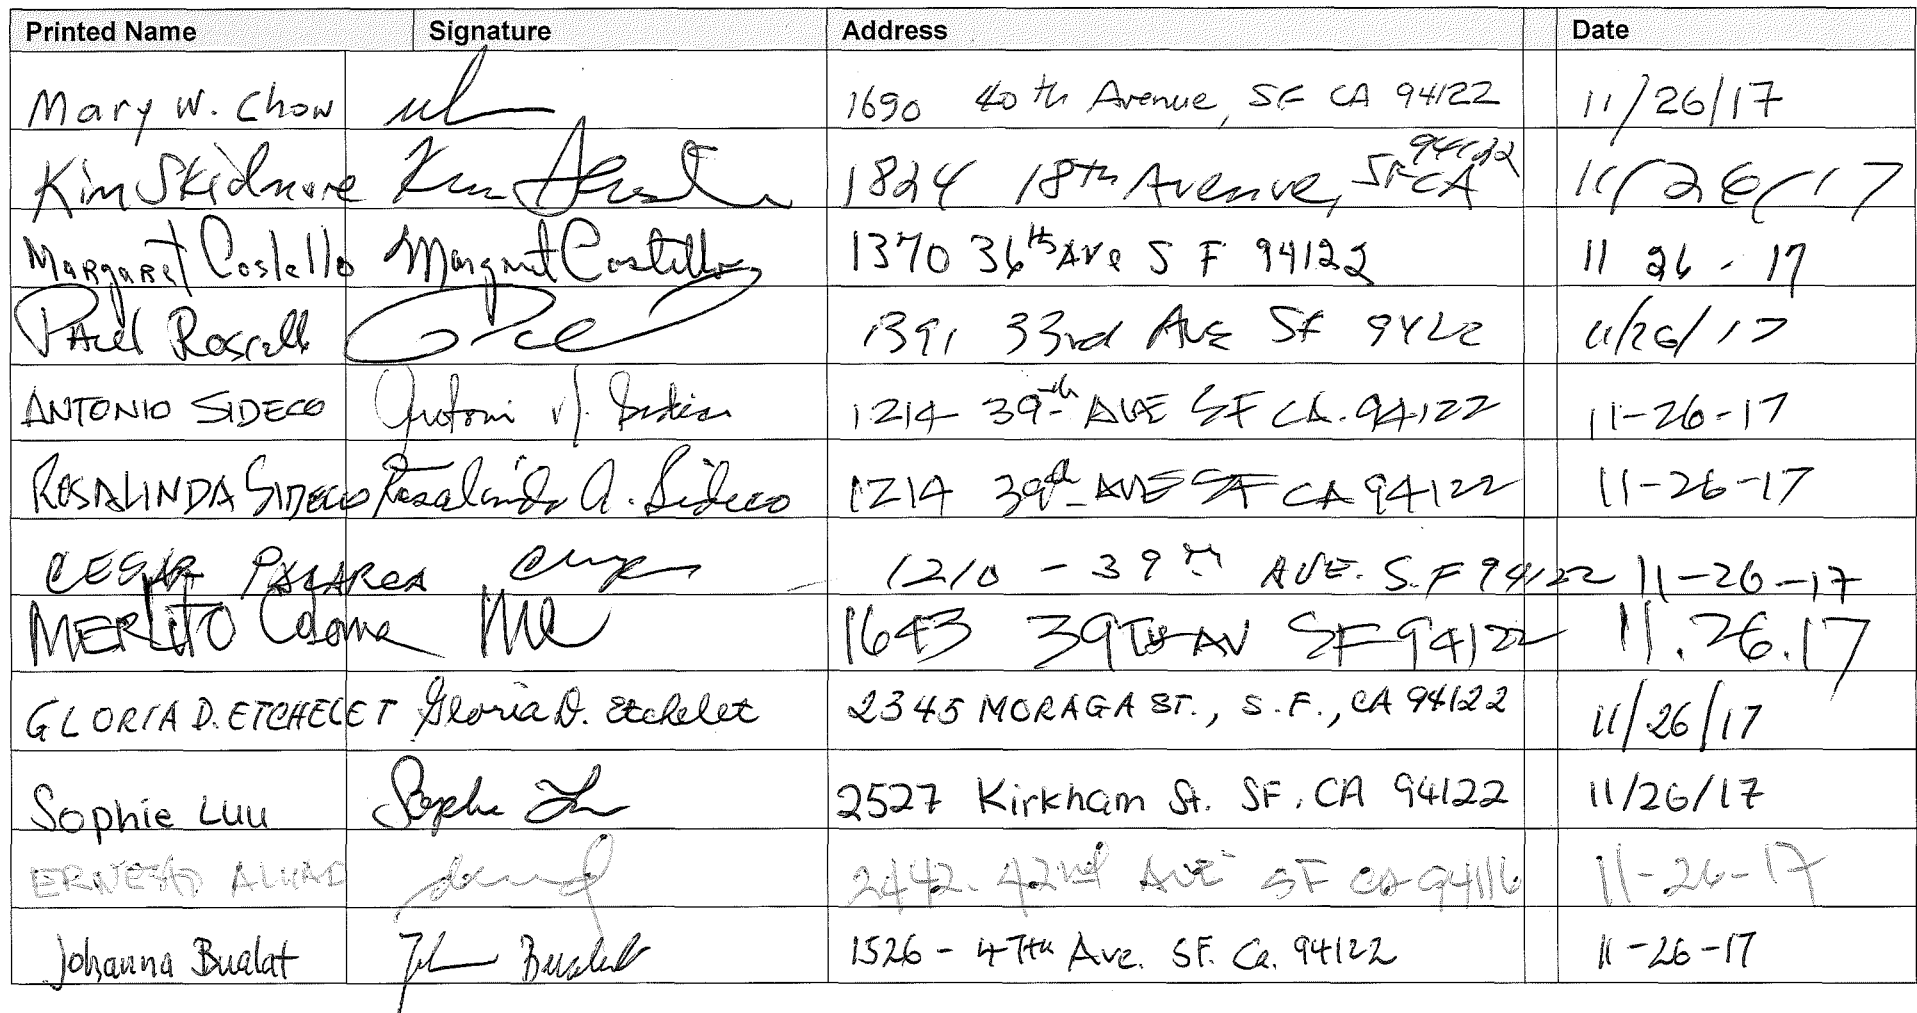 Printed Name Signature Address Date
Mary W. Chow 1690 40th Avenue, SF CA 94122 11/26/17
Kim Skidmore 1824 18th Avenue, SF CA 94122 11/26/17
Margaret Costello Margaret Costello 1370 36th Ave S F 94122 11 26 - 17
Paul 1391 33rd Ave SF 11/26/17
ANTONIO SIDECO 1214 39th AVE SF CA. 94122 11-26-17
ROSALINDA SIDECO Rosalinda A. Sideco 1214 39th AVE SF CA 94122 11-26-17
CESAR 1210 - 39th AVE. S.F 94122 11-26-17
MERLITO Coloma 1643 39TH AV SF 94122 11.26.17
GLORIA D. ETCHELET Gloria D. Etchelet 2345 MORAGA ST., S.F., CA 94122 11/26/17
Sophie Luu Sophie Luu 2527 Kirkham St. SF, CA 94122 11/26/17
ERNESTO 2442. 42nd AVE SF CA 94116 11-26-17
Johanna Bualat 1526 - 47th Ave. SF. Ca. 94122 11-26-17